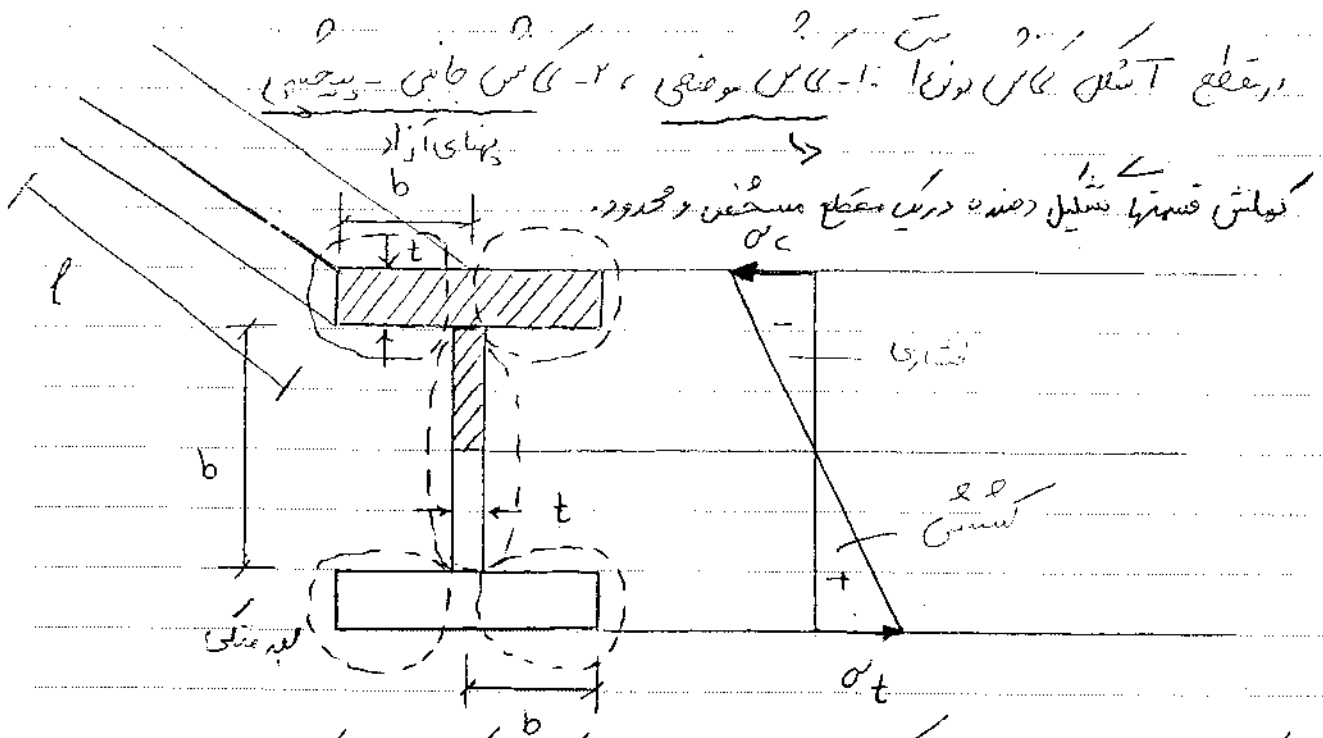 در مقطع I شکل کمانش دو نوع: ۱- کمانش موضعی ، ۲- کمانش جانبی - پیچشی
پهنای آزاد
کمانش قسمتها تشکیل دهنده در یک مقطع مشخص و محدود.
b
t
σc
l
-
فشاری
b
t
کششی
+
لبه متکی
b
σt